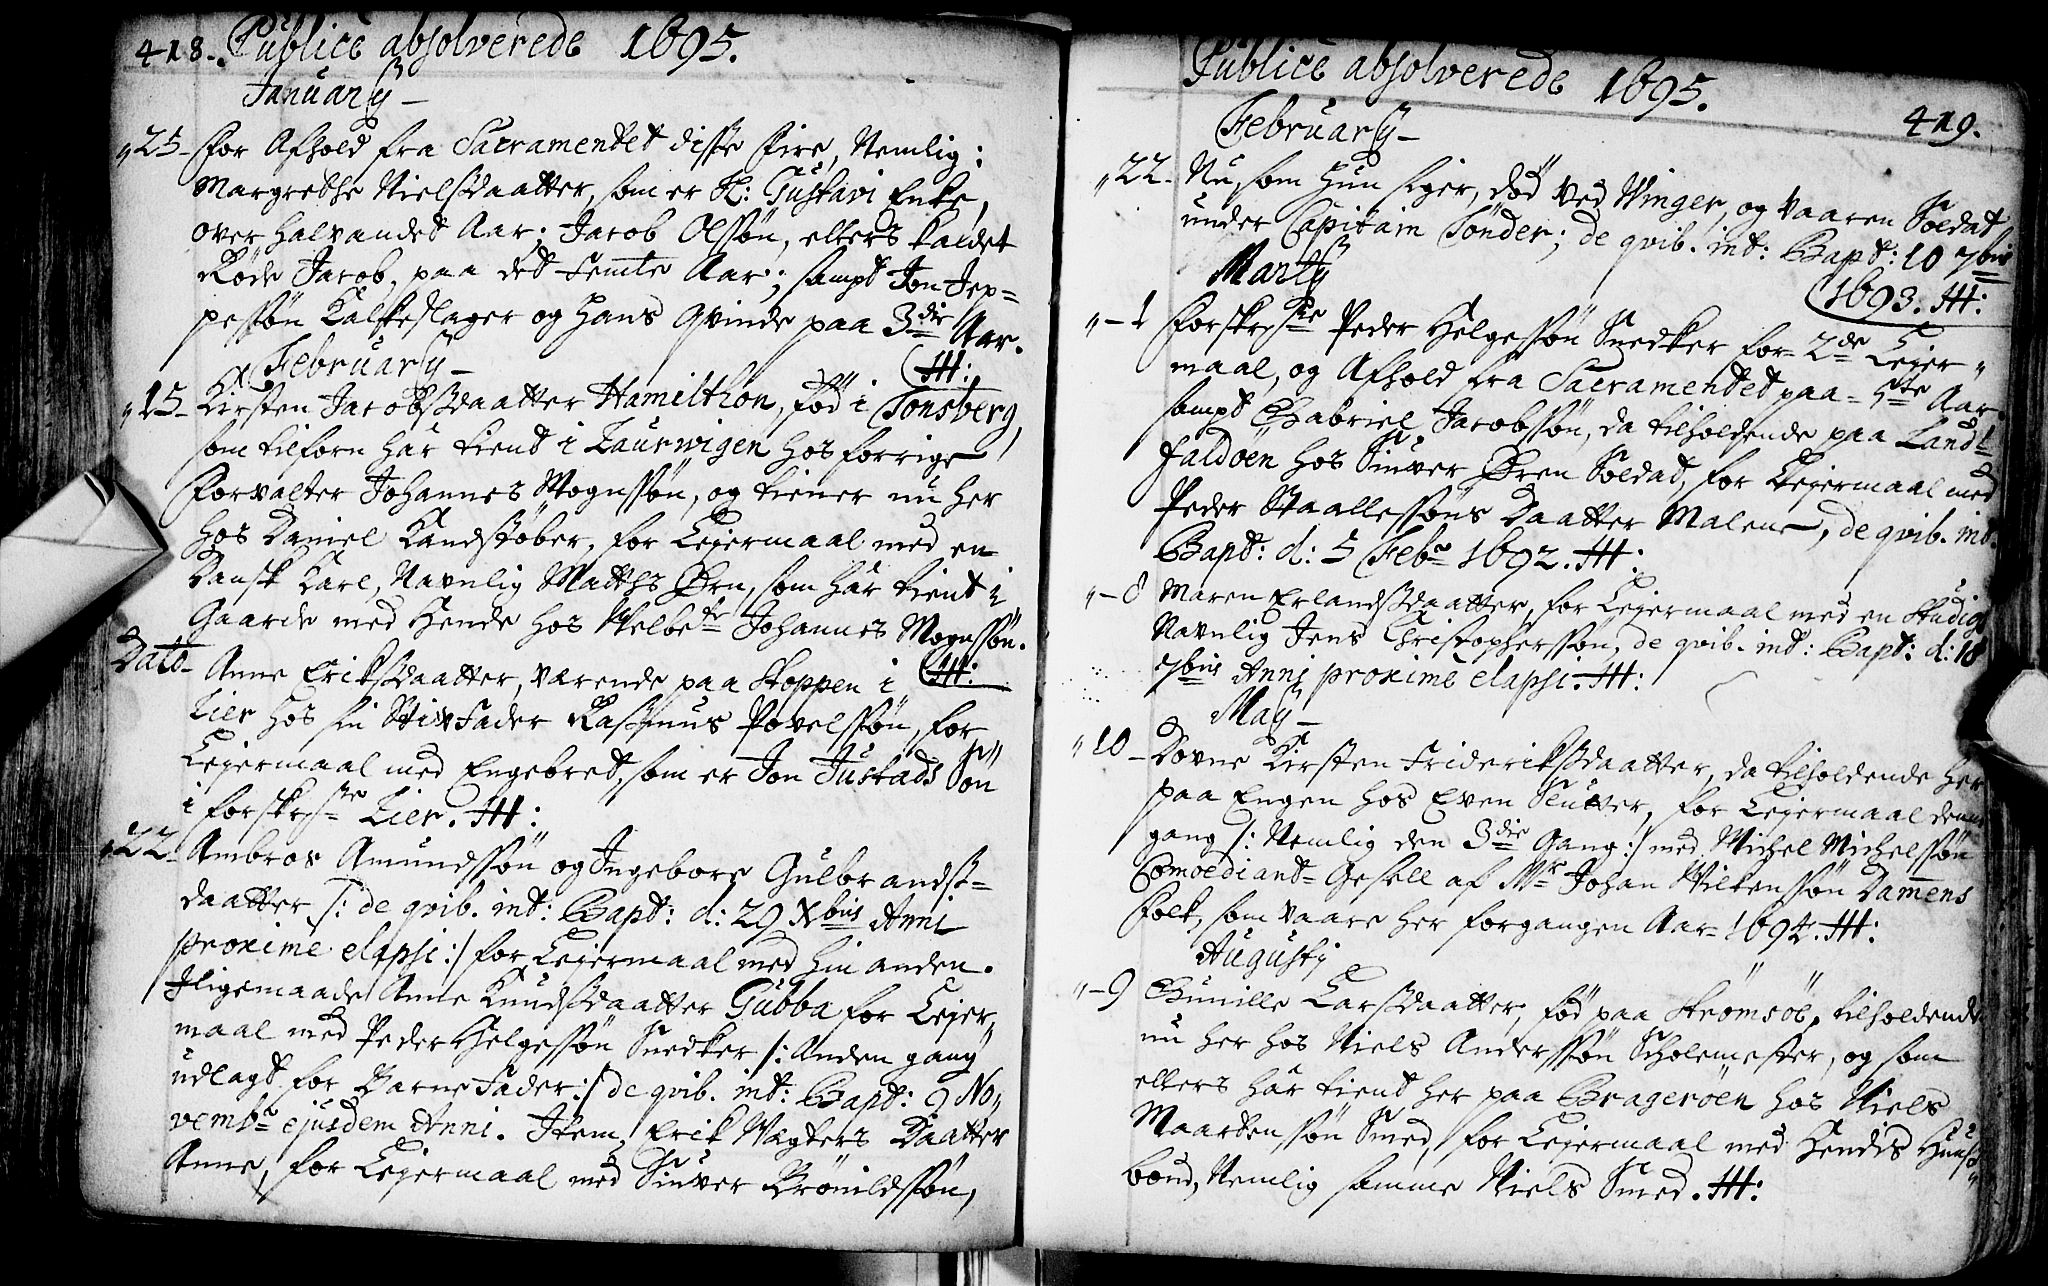 418. Publicè absolverede 1695.
Januarÿ
25 For Afhold fra Sacramentet disse Fire, Nemlig:
Margrethe Nielsdaatter, som er Sl: Gustavi Enke,
over halvandet Aar; Jacob Olssøn, ellers kaldet
Røde Jacob, paa det femte Aar; sampt Jon Jep=
pessøn Kalkeslager og hans Qvinde paa 3die Aar.
Februarÿ HH:
15 Kirsten Jacobsdaatter Hamilthon, fød i Tønsberg,
som tilforn har tient i Laurwigen hos forrige
Forvalter Johannes Mognssøn, og tiener nu her
hos Daniel Kandstøber, for Leÿermaal med en
Dansk Karl, Navnlig Matths Ørn, som har tient i
Gaarde med Hende hos Welbete Johannes Mognssøn.
Dato HH:
Anne Eriksdaatter, værende paa Stoppen i
Lier hos sin Stivfader Rasmus Povelssøn, for
Leÿermaal med Engebret, som er Jon Justads Søn
i forskrne Lier. HH:
22 Ambros Amundssøn og Ingebore Gulbrands=
daatter /: de qvib. int: Bapt: d: 29 Xbris Anni
proxime elapsi :/ for Leÿermaal med hin anden.
Iligemaade Anne Knudsdaatter Gubba for Leÿer,,
maal med Peder Helgessøn Snedker /: Anden gang
udlagt for Barnefader :/ de qvib. int: Bapt: 9 No,,
vembr ejusdem Anni. Item, Erik Wægters Daatter
Anne, for Leÿermaal med Siuver Brønildssøn,
Publicè absolverede 1695.
419.
Februarÿ
22 Nu, som hun siger, død ved Winger, og vaaren Soldat
under Capitain Tønder; de qvib. int: Bapt: 10 7bris
1693. HH:
Martÿ
1 Forskrne Peder Helgessøn Snedker for 2de Leÿer,,
maal, og Afhold fra Sacramentet paa 5te Aar.
sampt Gabriel Jacobssøn, da tilholdende paa Land=
faldøen hos Siuver Øren Soldat, for Leÿermaal med
Peder Staallessøns Daatter Malene, de qvib. int.
Bapt: d: 5 Febr 1692. HH:
8 Maren Erlandsdaatter, for Leÿermaal med en Studios
Navnlig Jens Christopherssøn, de qvib. int: Bapt: d: 18
7bris Anni proximè elapsi. HH:
Maÿ
10 Døvne Kirsten Frideriksdaatter, da tilholdende her
paa Engen hos Even Slutter, for Leÿermaal denne
gang /: Nemlig den 3die Gang :/ med Michel Michelssøn
Comoediant-Gesell af Mr Johan Wilkenssøn Damens
Folk, som vaare her forgangen Aar 1694. HH:
Augustj
9 Gunille Larsdaatter, fød paa Strømsöe, tilholdende
nu her hos Niels Anderssøn Scholemester, og som
ellers har tient her paa Bragerøen hos Niels
Maartenssøn Smed, for Leÿermaal med Hendis Huus,,
bond, Nemlig samme Niels Smed. HH: